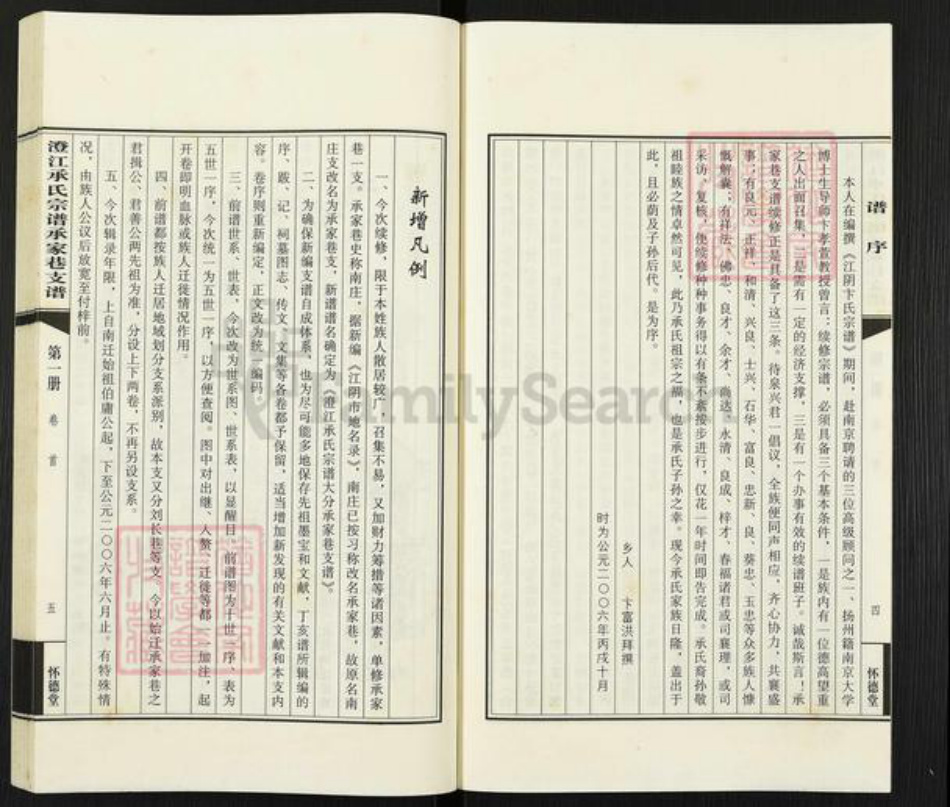 谱序
四
怀德堂
本人在编撰《江阴卞氏宗谱》期间，赴南京聘请的三位高级顾问之一、扬州籍南京大学
博士生导师卞孝萱教授曾言：续修宗谱，必须具备三个基本条件，一是族内有一位德高望重
之人出面召集，二是需有一定的经济支撑，三是有一个办事有效的续谱班子。诚哉斯言！承
家巷支谱续修正是具备了这三条。待泉兴君一倡议，全族便同声相应，齐心协力，共襄盛
事；有良元、正祥、和清、兴良、士兴、石华、富良、忠新、良、葵忠、玉忠等众多族人慷
慨解囊；有祥法、佛忠、良才、余才、尚达、永清、良成、梓才、春福诸君或司襄理，或司
采访、复核，使续修种种事务得以有条不紊按步进行，仅花一年时间即告完成。承氏裔孙敬
祖睦族之情卓然可见，此乃承氏祖宗之福，也是承氏子孙之幸。现今承氏家族日隆，盖出于
此，且必荫及子孙后代。是为序。
乡人 卞富洪拜撰
时为公元二〇〇六年丙戌十月
新增凡例
一、今次续修，限于本姓族人散居较广，召集不易，又加财力筹措等诸因素，单修承家
巷一支。承家巷史称南庄，据新编《江阴市地名录》，南庄已按习称改名承家巷，故原名南
庄支改名为承家巷支，新谱谱名确定为《澄江承氏宗谱大分承家巷支谱》。
二、为确保新编支谱自成体系，也为尽可能多地保存先祖墨宝和文献，丁亥谱所辑编的
序、跋、记、祠墓图志、传文、文集等各卷都予保留，适当增加新发现的有关文献和本支内
容。卷序则重新编定，正文改为统一编码
三、前谱世系、世表，今次改为世系图、世系表，以显醒目。前谱图为十世一序、表为
五世一序，今次统一为五世一序，以方便查阅。图中对出继、入赘、迁徙等都一一加注，起
开卷即明血脉或族人迁徙情况作用。
四、前谱都按族人迁居地域划分支系派别，故本支又分刘长巷等支，今以始迁承家巷之
君揖公、君善公两先祖为准，分设上下两卷，不再另设支系。
五、今次辑录年限，上自南迁始祖伯庸公起，下至公元二〇〇六年六月止。有特殊情
况，由族人公议后放宽至付梓前。
澄江承氏宗谱承家巷支谱
第一册
卷首
五
怀德堂
FamilySearch